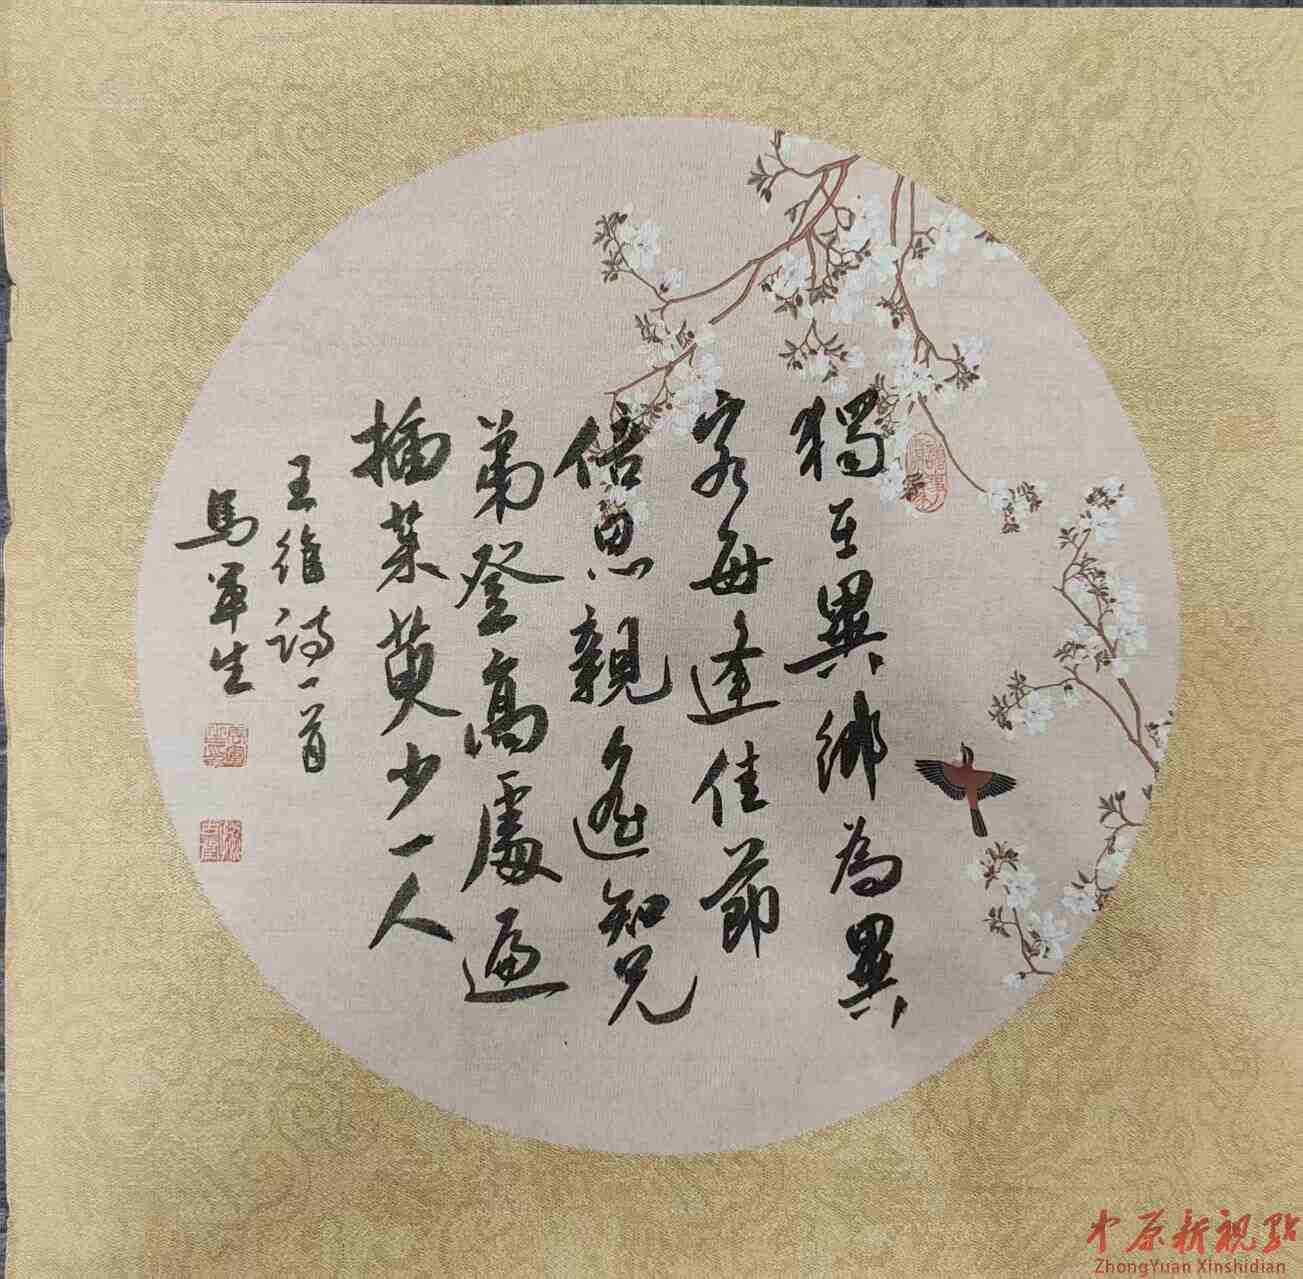 獨在異鄉為異
客每逢佳節
倍思親遙知兄
弟登高處遍
插茱萸少一人
王維詩一首
馬軍生
中原新視點
ZhongYuan Xinshidian